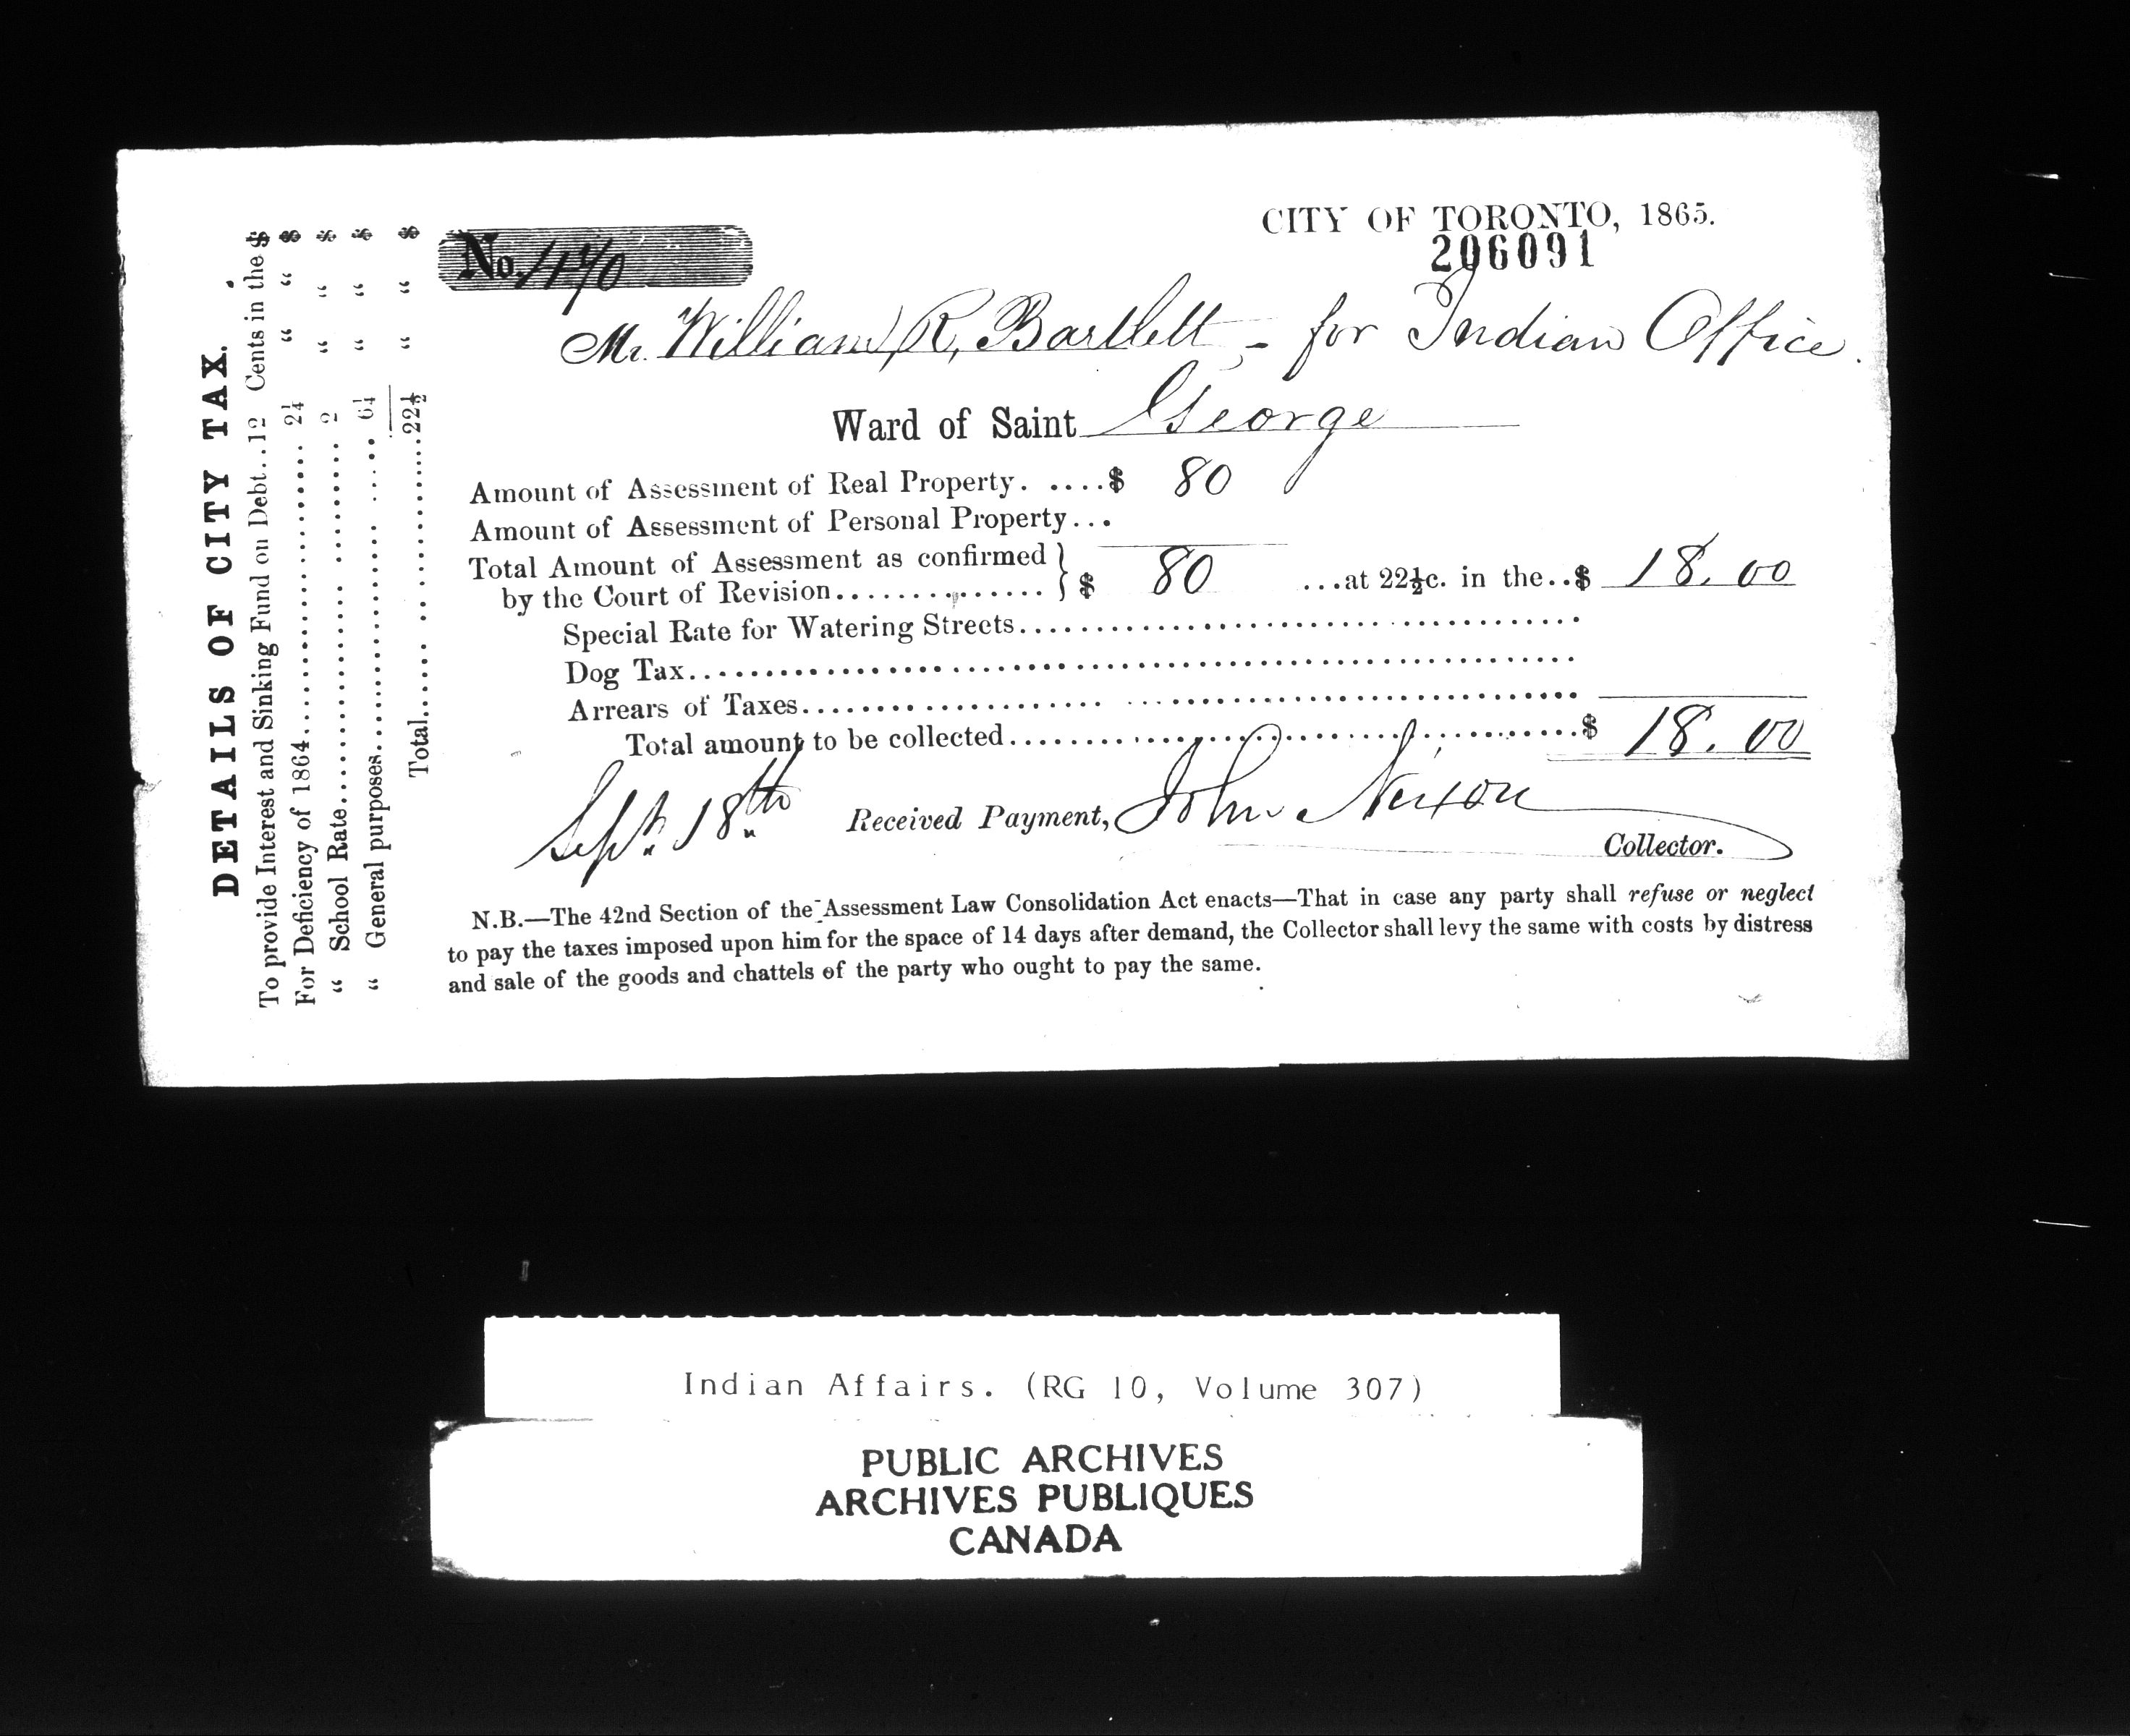 CITY OF TORONTO, 1865.
206091
No. 1170
Mr. William R, Bartlett - for Indian Office.
Ward of Saint George
Amount of Assessment of Real Property. ....$ 80
Amount of Assessment of Personal Property...
Total Amount of Assessment as confirmed
by the Court of Revision................ } $ 80 ...at 22½c. in the..$ 18.00
Special Rate for Watering Streets
Dog Tax
Arrears of Taxes
Total amount to be collected $ 18.00
Sept. 18th Received Payment, John Nixon
Collector.
N.B.—The 42nd Section of the Assessment Law Consolidation Act enacts—That in case any party shall refuse or neglect
to pay the taxes imposed upon him for the space of 14 days after demand, the Collector shall levy the same with costs by distress
and sale of the goods and chattels of the party who ought to pay the same.
DETAILS OF CITY TAX.
To provide Interest and Sinking Fund on Debt..12 Cents in the $
For Deficiency of 1864 2¼ " " $
" School Rate 2 " " $
" General purposes 6¼ " " $
Total 22½ " " $
Indian Affairs. (RG 10, Volume 307)
PUBLIC ARCHIVES
ARCHIVES PUBLIQUES
CANADA